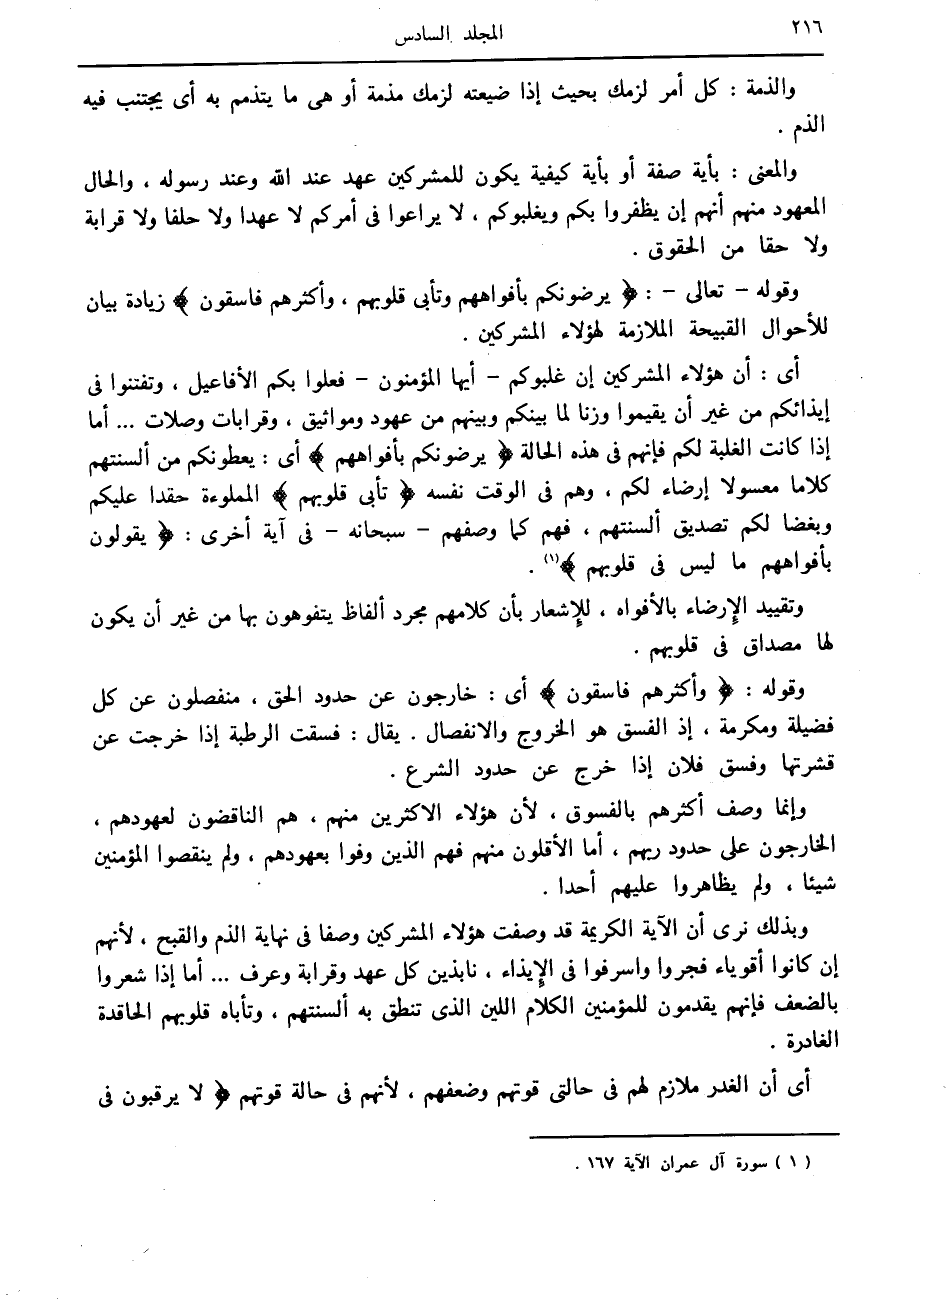 ٢١٦
المجلد السادس
والذمة : كل أمر لزمك بحيث إذا ضيعته لزمك مذمة أو هى ما يتذمم به أى يجتنب فيه
الذم .
والمعنى : بأية صفة أو بأية كيفية يكون للمشركين عهد عند الله وعند رسوله ، والحال
المعهود منهم أنهم إن يظفروا بكم ويغلبوكم ، لا يراعوا فى أمركم لا عهدا ولا حلفا ولا قرابة
ولا حقا من الحقوق .
وقوله – تعالى – : ﴿ يرضونكم بأفواههم وتأبى قلوبهم ، وأكثرهم فاسقون ﴾ زيادة بيان
للأحوال القبيحة الملازمة لهؤلاء المشركين .
أى : أن هؤلاء المشركين إن غلبوكم – أيها المؤمنون – فعلوا بكم الأفاعيل ، وتفتنوا فى
إيذائكم من غير أن يقيموا وزنا لما بينكم وبينهم من عهود ومواثيق ، وقرابات وصلات ... أما
إذا كانت الغلبة لكم فإنهم فى هذه الحالة ﴿ يرضونكم بأفواههم ﴾ أى : يعطونكم من ألسنتهم
كلاما معسولا إرضاء لكم ، وهم فى الوقت نفسه ﴿ تأبى قلوبهم ﴾ المملوءة حقدا عليكم
وبغضا لكم تصديق ألسنتهم ، فهم كما وصفهم – سبحانه – فى آية أخرى : ﴿ يقولون
بأفواههم ما ليس فى قلوبهم ﴾(١) .
وتقييد الإرضاء بالأفواه ، للإشعار بأن كلامهم مجرد ألفاظ يتفوهون بها من غير أن يكون
لها مصداق فى قلوبهم .
وقوله : ﴿ وأكثرهم فاسقون ﴾ أى : خارجون عن حدود الحق ، منفصلون عن كل
فضيلة ومكرمة ، إذ الفسق هو الخروج والانفصال . يقال : فسقت الرطبة إذا خرجت عن
قشرتها وفسق فلان إذا خرج عن حدود الشرع .
وإنما وصف أكثرهم بالفسوق ، لأن هؤلاء الاكثرين منهم ، هم الناقضون لعهودهم ،
الخارجون على حدود ربهم ، أما الأقلون منهم فهم الذين وفوا بعهودهم ، ولم ينقصوا المؤمنين
شيئا ، ولم يظاهروا عليهم أحدا .
وبذلك نرى أن الآية الكريمة قد وصفت هؤلاء المشركين وصفا فى نهاية الذم والقبح ، لأنهم
إن كانوا أقوياء فجروا واسرفوا فى الإيذاء ، نابذين كل عهد وقرابة وعرف ... أما إذا شعروا
بالضعف فإنهم يقدمون للمؤمنين الكلام اللين الذى تنطق به ألسنتهم ، وتأباه قلوبهم الحاقدة
الغادرة .
أى أن الغدر ملازم لهم فى حالتى قوتهم وضعفهم ، لأنهم فى حالة قوتهم ﴿ لا يرقبون فى
( ١ ) سورة آل عمران الآية ١٦٧ .